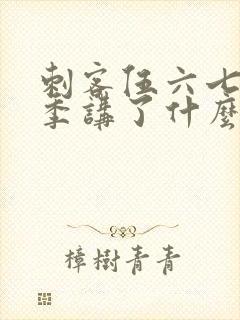 刺客伍六七
季講了什麼
樟樹青青